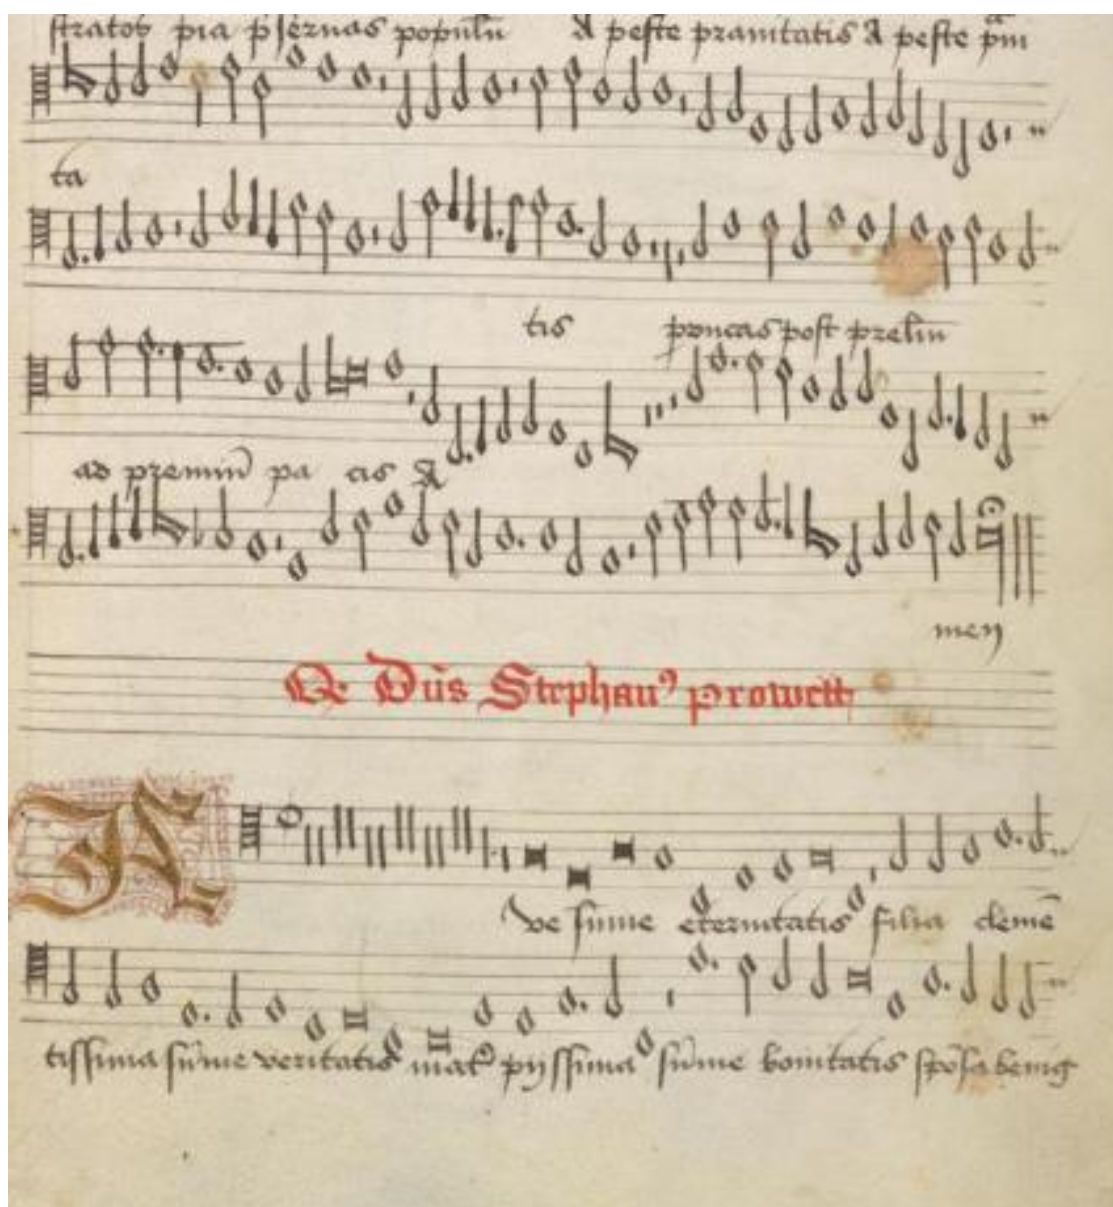 stratos pia pſeruas populū A peſte prauitatis A peſte
ta
tis poncas poſt preliū
ad premiū pa cis A
men
Qd Dn̄s Stephan⁹ prowett
A
ve ſum̄e eternitatis filia clemē
tiſſima ſum̄e veritatis mat̉ pijſſima ſum̄e bonitatis ſpōſa benig